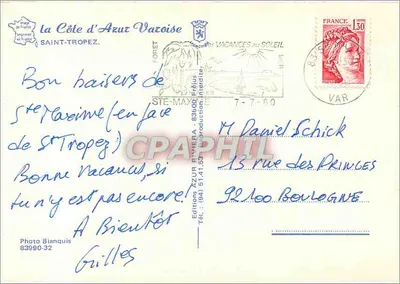 la Côte d'Azur Varoise
SAINT-TROPEZ
VACANCES SOLEIL
STE-MAX
7-7-80
FRANCE
1,30
VAR
Bon baisers de
Ste Maxime (en face
de St Tropez)
Bonne Vacances, si
tu n'y est pas encore!
A Bientôt
Gilles
M Daniel Schick
13 rue des PRINCES
92100 BOULOGNE
CPAPHIL
Editions AZUR RIVIERA - 83600 Fréjus
Tél. : (94) 51.41.53 reproduction interdite
Photo Blanquis
83990-32